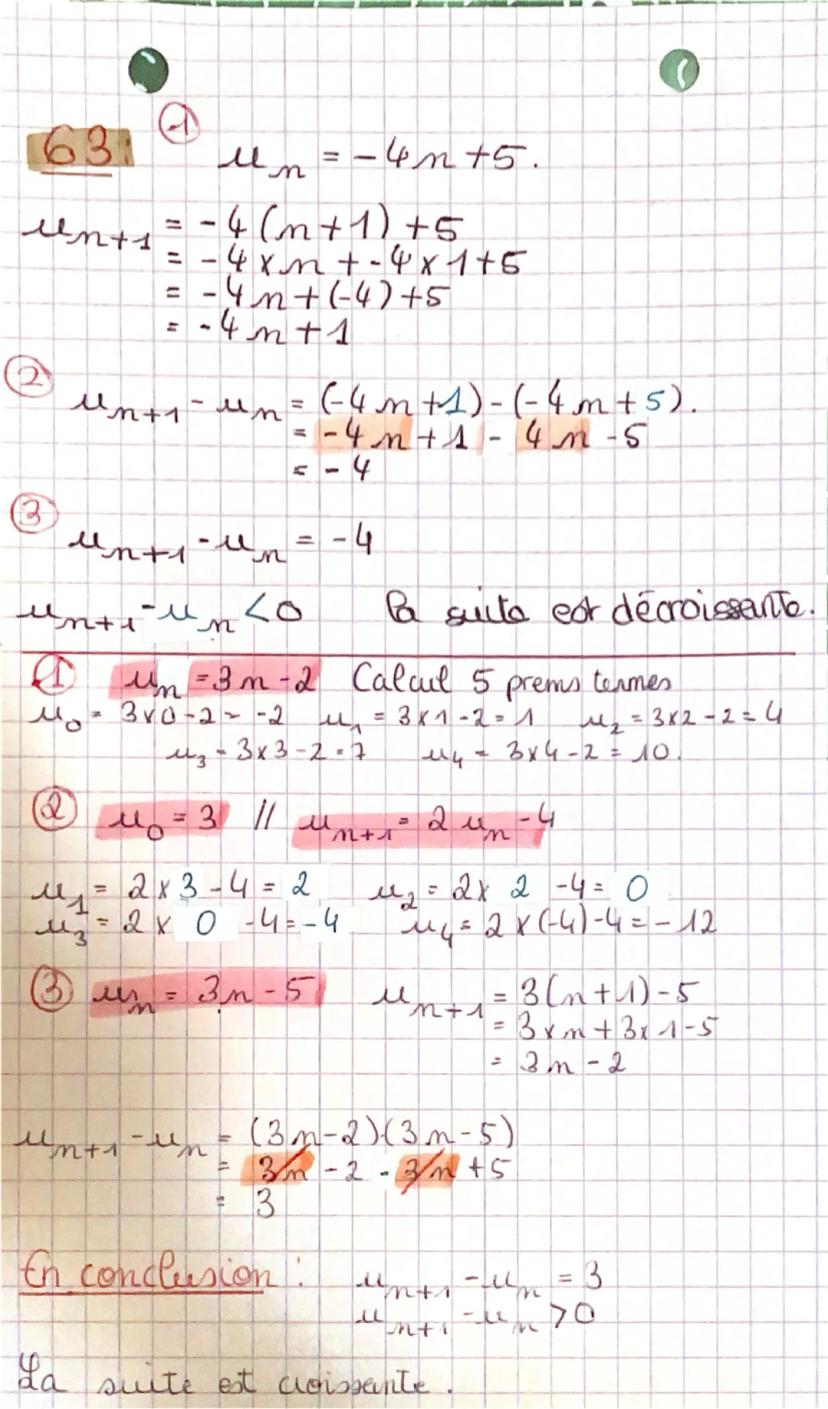 63: ① uₙ = -4n+5.
uₙ₊₁ = -4(n+1)+5
= -4×n + -4×1+5
= -4n+(-4)+5
= -4n+1
② uₙ₊₁ - uₙ = (-4n+1)-(-4n+5).
= -4n+1 - 4n -5
= -4
③ uₙ₊₁ - uₙ = -4
uₙ₊₁ - uₙ <0 la suite est décroissante.
① uₙ = 3n-2 Calcul 5 prems termes
u₀ = 3×0-2 = -2 u₁ = 3×1-2=1 u₂ = 3×2-2=4
u₃ = 3×3-2=7 u₄ = 3×4-2=10.
② u₀ = 3 // uₙ₊₁ = 2uₙ-4
u₁ = 2×3-4=2 u₂ = 2×2-4=0
u₃ = 2×0-4=-4 u₄ = 2×(-4)-4=-12
③ uₙ = 3n-5 uₙ₊₁ = 3(n+1)-5
= 3×n+3×1-5
= 3n-2
uₙ₊₁ - uₙ = (3n-2)-(3n-5)
= 3n-2-3n+5
= 3
En conclusion : uₙ₊₁ - uₙ = 3
uₙ₊₁ - uₙ >0
La suite est croissante.